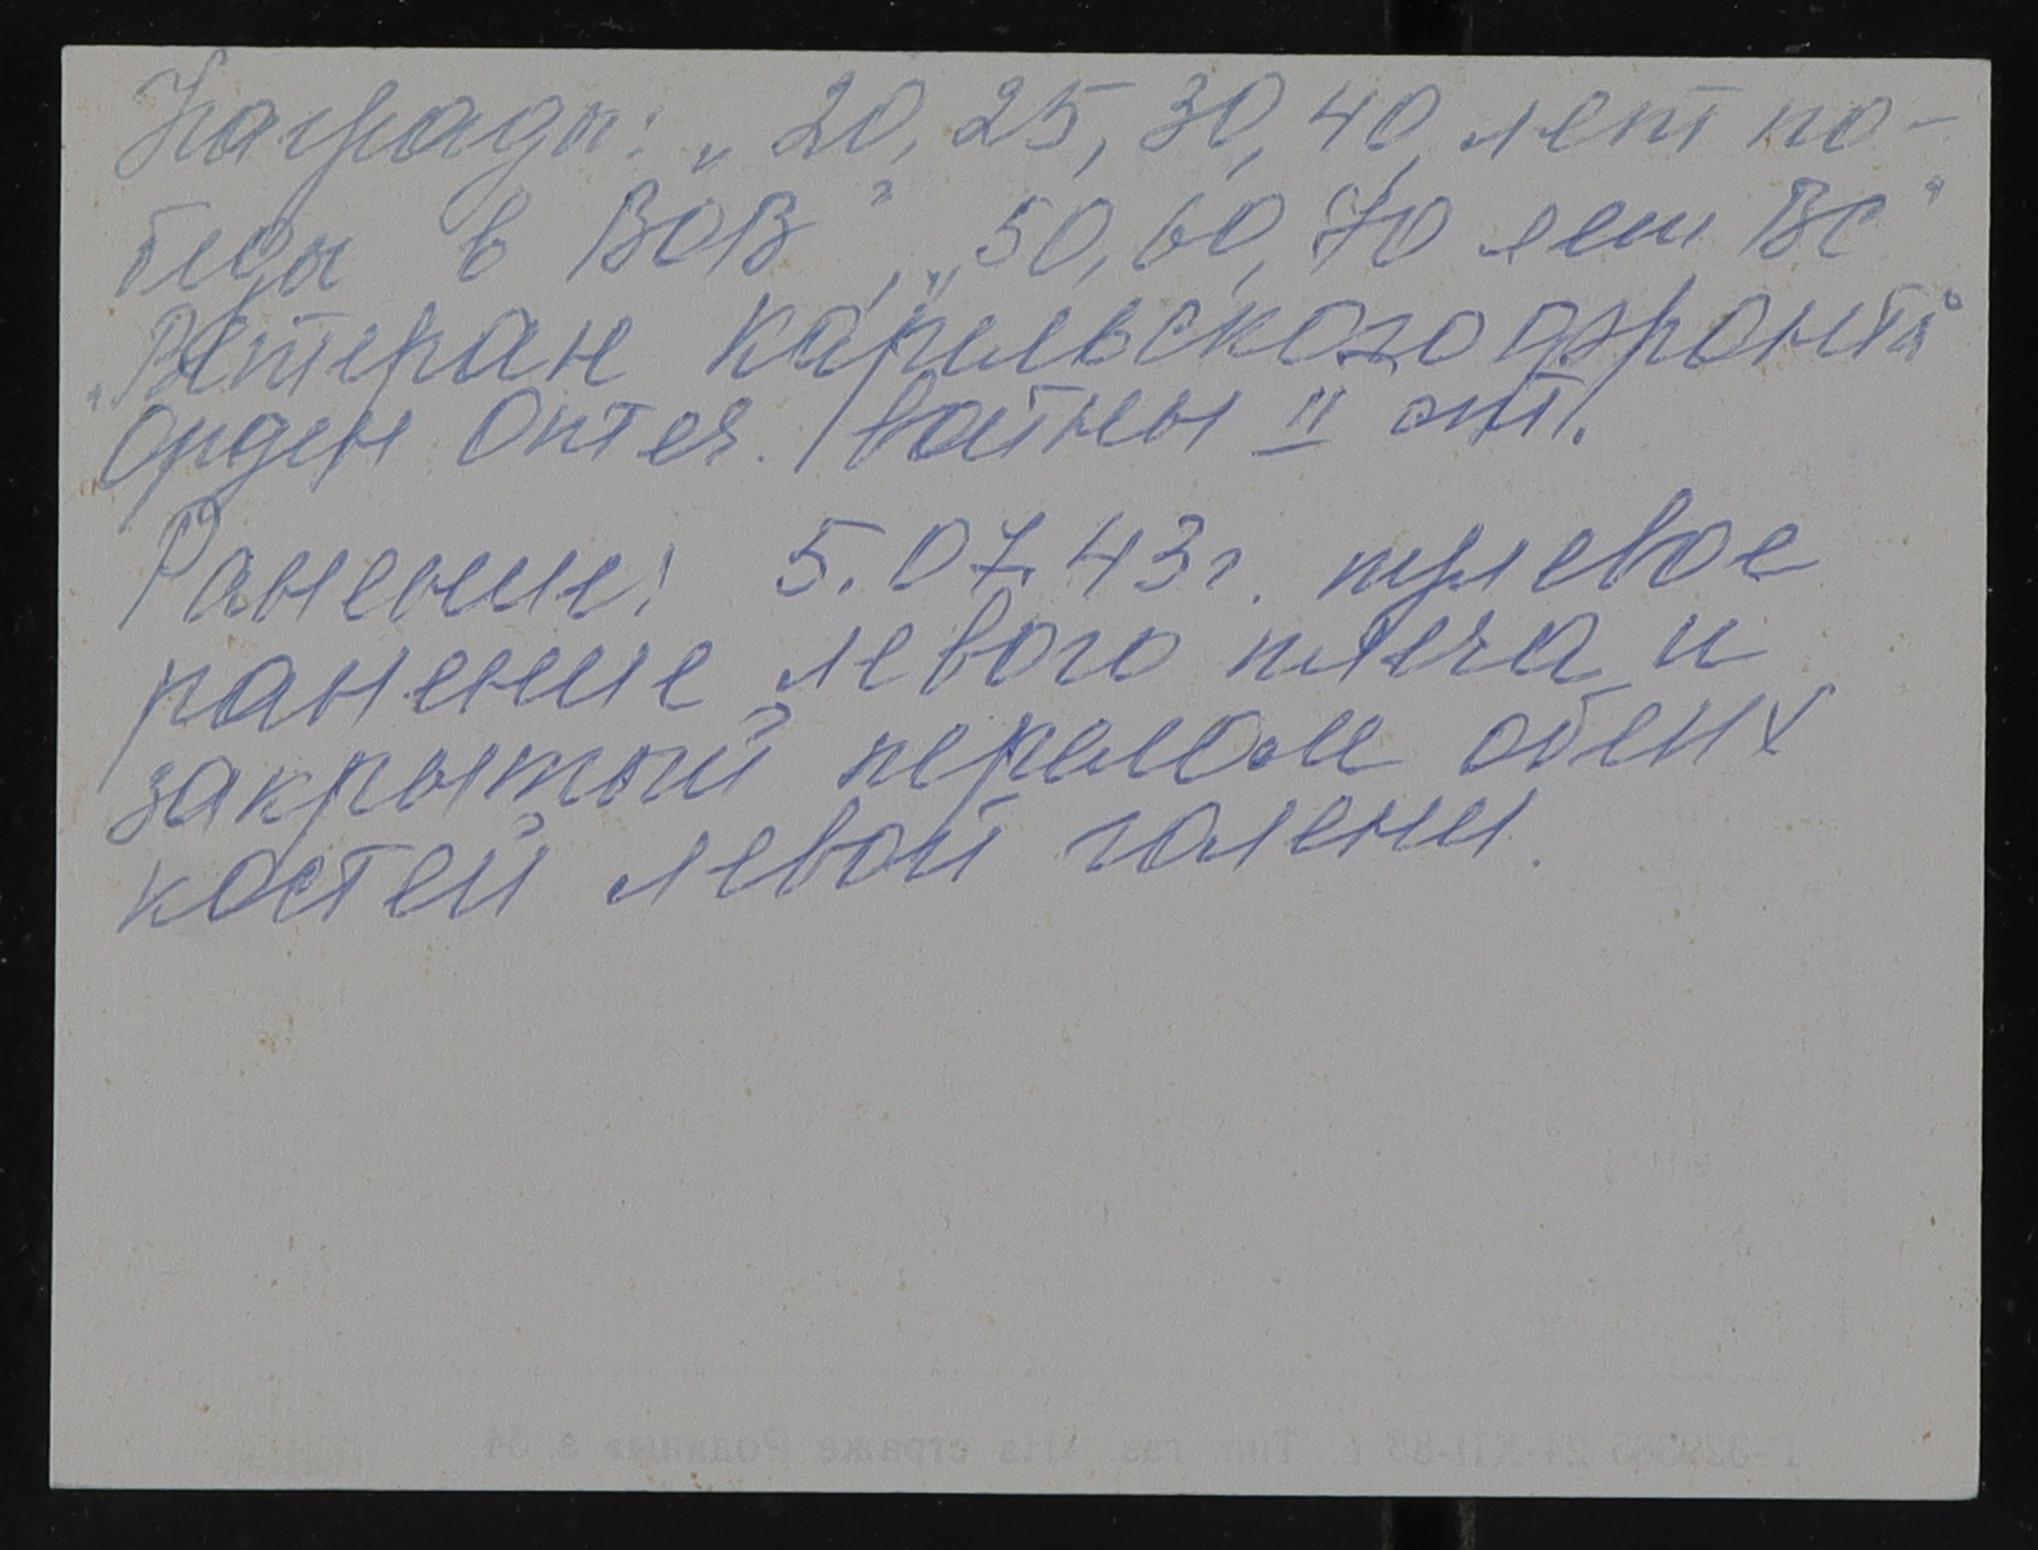 Награды: „20, 25, 30, 40 лет по-
беды в ВОВ", „50, 60, 70 лет ВС"
„Ветеран Карельского фронта"
Орден Отеч. войны II ст.
Ранение: 5.07.43г. пулевое
ранение левого плеча и
закрытый перелом обеих
костей левой голени.